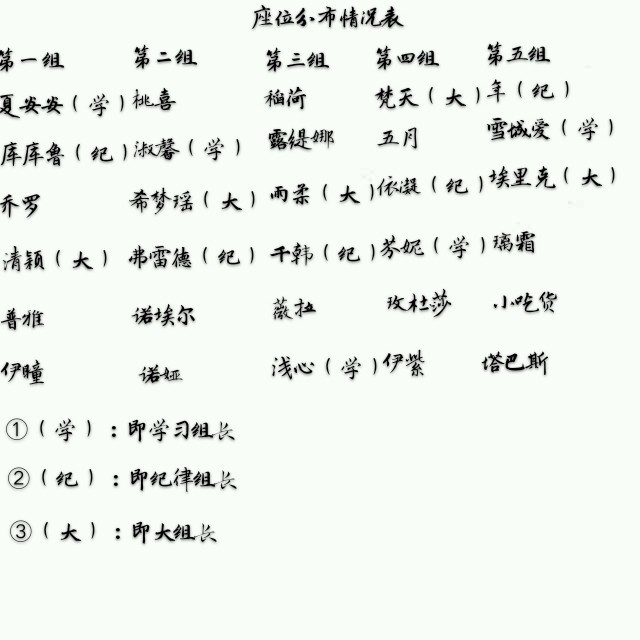 座位分布情况表
第一组 第二组 第三组 第四组 第五组
夏安安（学） 桃喜 稻荷 梵天（大） 年（纪）
库库鲁（纪） 淑馨（学） 露缇娜 五月 雪城爱（学）
乔罗 希梦瑶（大） 雨柔（大） 依凝（纪） 埃里克（大）
清颖（大） 弗雷德（纪） 千韩（纪） 芬妮（学） 璃霜
普雅 诺埃尔 薇拉 玫杜莎 小吃货
伊瞳 诺娅 浅心（学） 伊紫 塔巴斯
①（学）：即学习组长
②（纪）：即纪律组长
③（大）：即大组长